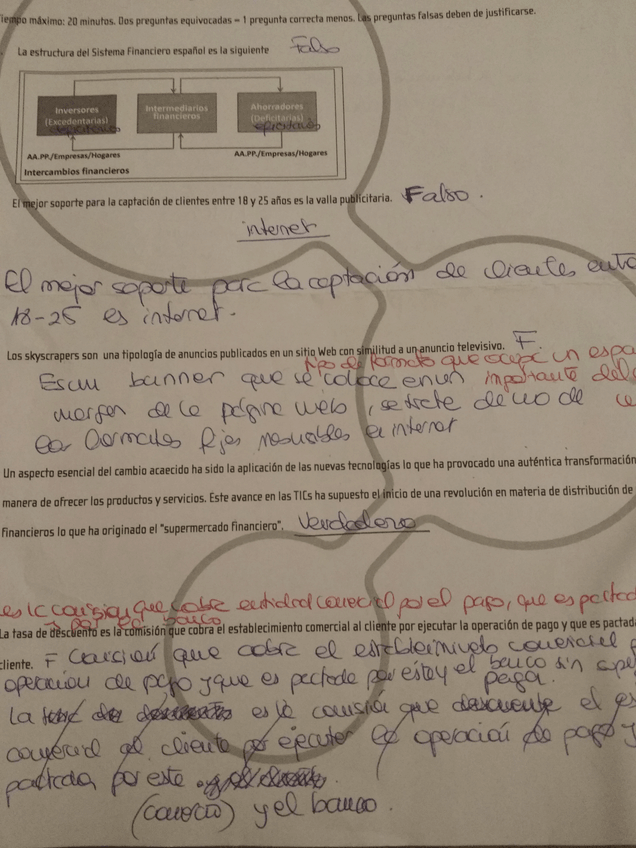 iempo máximo: 20 minutos. Dos preguntas equivocadas = 1 pregunta correcta menos. Las preguntas falsas deben de justificarse.
La estructura del Sistema Financiero español es la siguiente Falso
Inversores Intermediarios Ahorradores
(Excedentarias) financieros (Deficitarias)
AA.PP./Empresas/Hogares AA.PP./Empresas/Hogares
Intercambios financieros
El mejor soporte para la captación de clientes entre 18 y 25 años es la valla publicitaria. Falso.
internet
El mejor soporte para la captación de clientes entr
18-25 es internet.
Los skyscrapers son una tipología de anuncios publicados en un sitio Web con similitud a un anuncio televisivo. F.
tipo de formato que ocupa un espa
Es un banner que se coloca en un importante del
margen de la página web, se trata de uno de
los formatos fijos en internet
Un aspecto esencial del cambio acaecido ha sido la aplicación de las nuevas tecnologías lo que ha provocado una auténtica transformación
manera de ofrecer los productos y servicios. Este avance en las TICs ha supuesto el inicio de una revolución en materia de distribución de
financieros lo que ha originado el "supermercado financiero". Verdadero
es la comisión que cobra entidad comercial por el pago, que es pactad
por el banco
La tasa de descuento es la comisión que cobra el establecimiento comercial al cliente por ejecutar la operación de pago y que es pactada
cliente. F comisión que cobra el establecimiento comercial p
operación de pago y que es pactada por este y el banco sin
paga.
La es la comisión que descuente el es
comercial al cliente por ejecutar la operación de pago y
pactada por este
(comercio) y el banco.